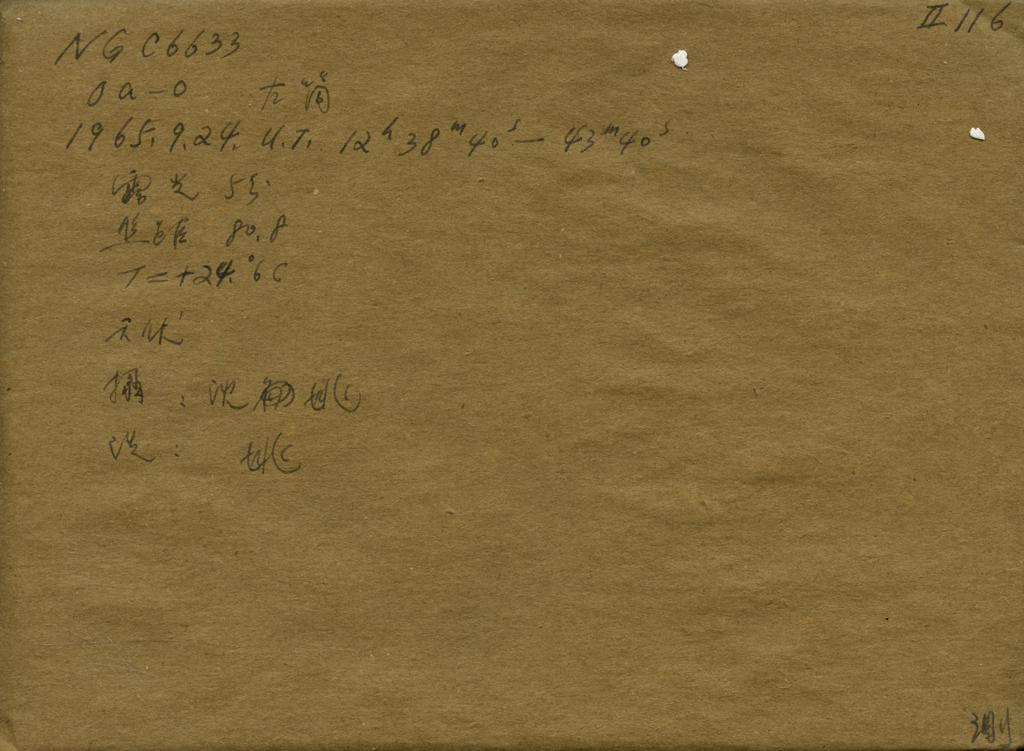 II 116
NGC6633
Oa-O 左筒
1965.9.24. U.T. 12h38m40s—43m40s
露光 5分
焦距 80.8
T=+24.°6C
天状
摄: 沈 姚
洗: 姚
测